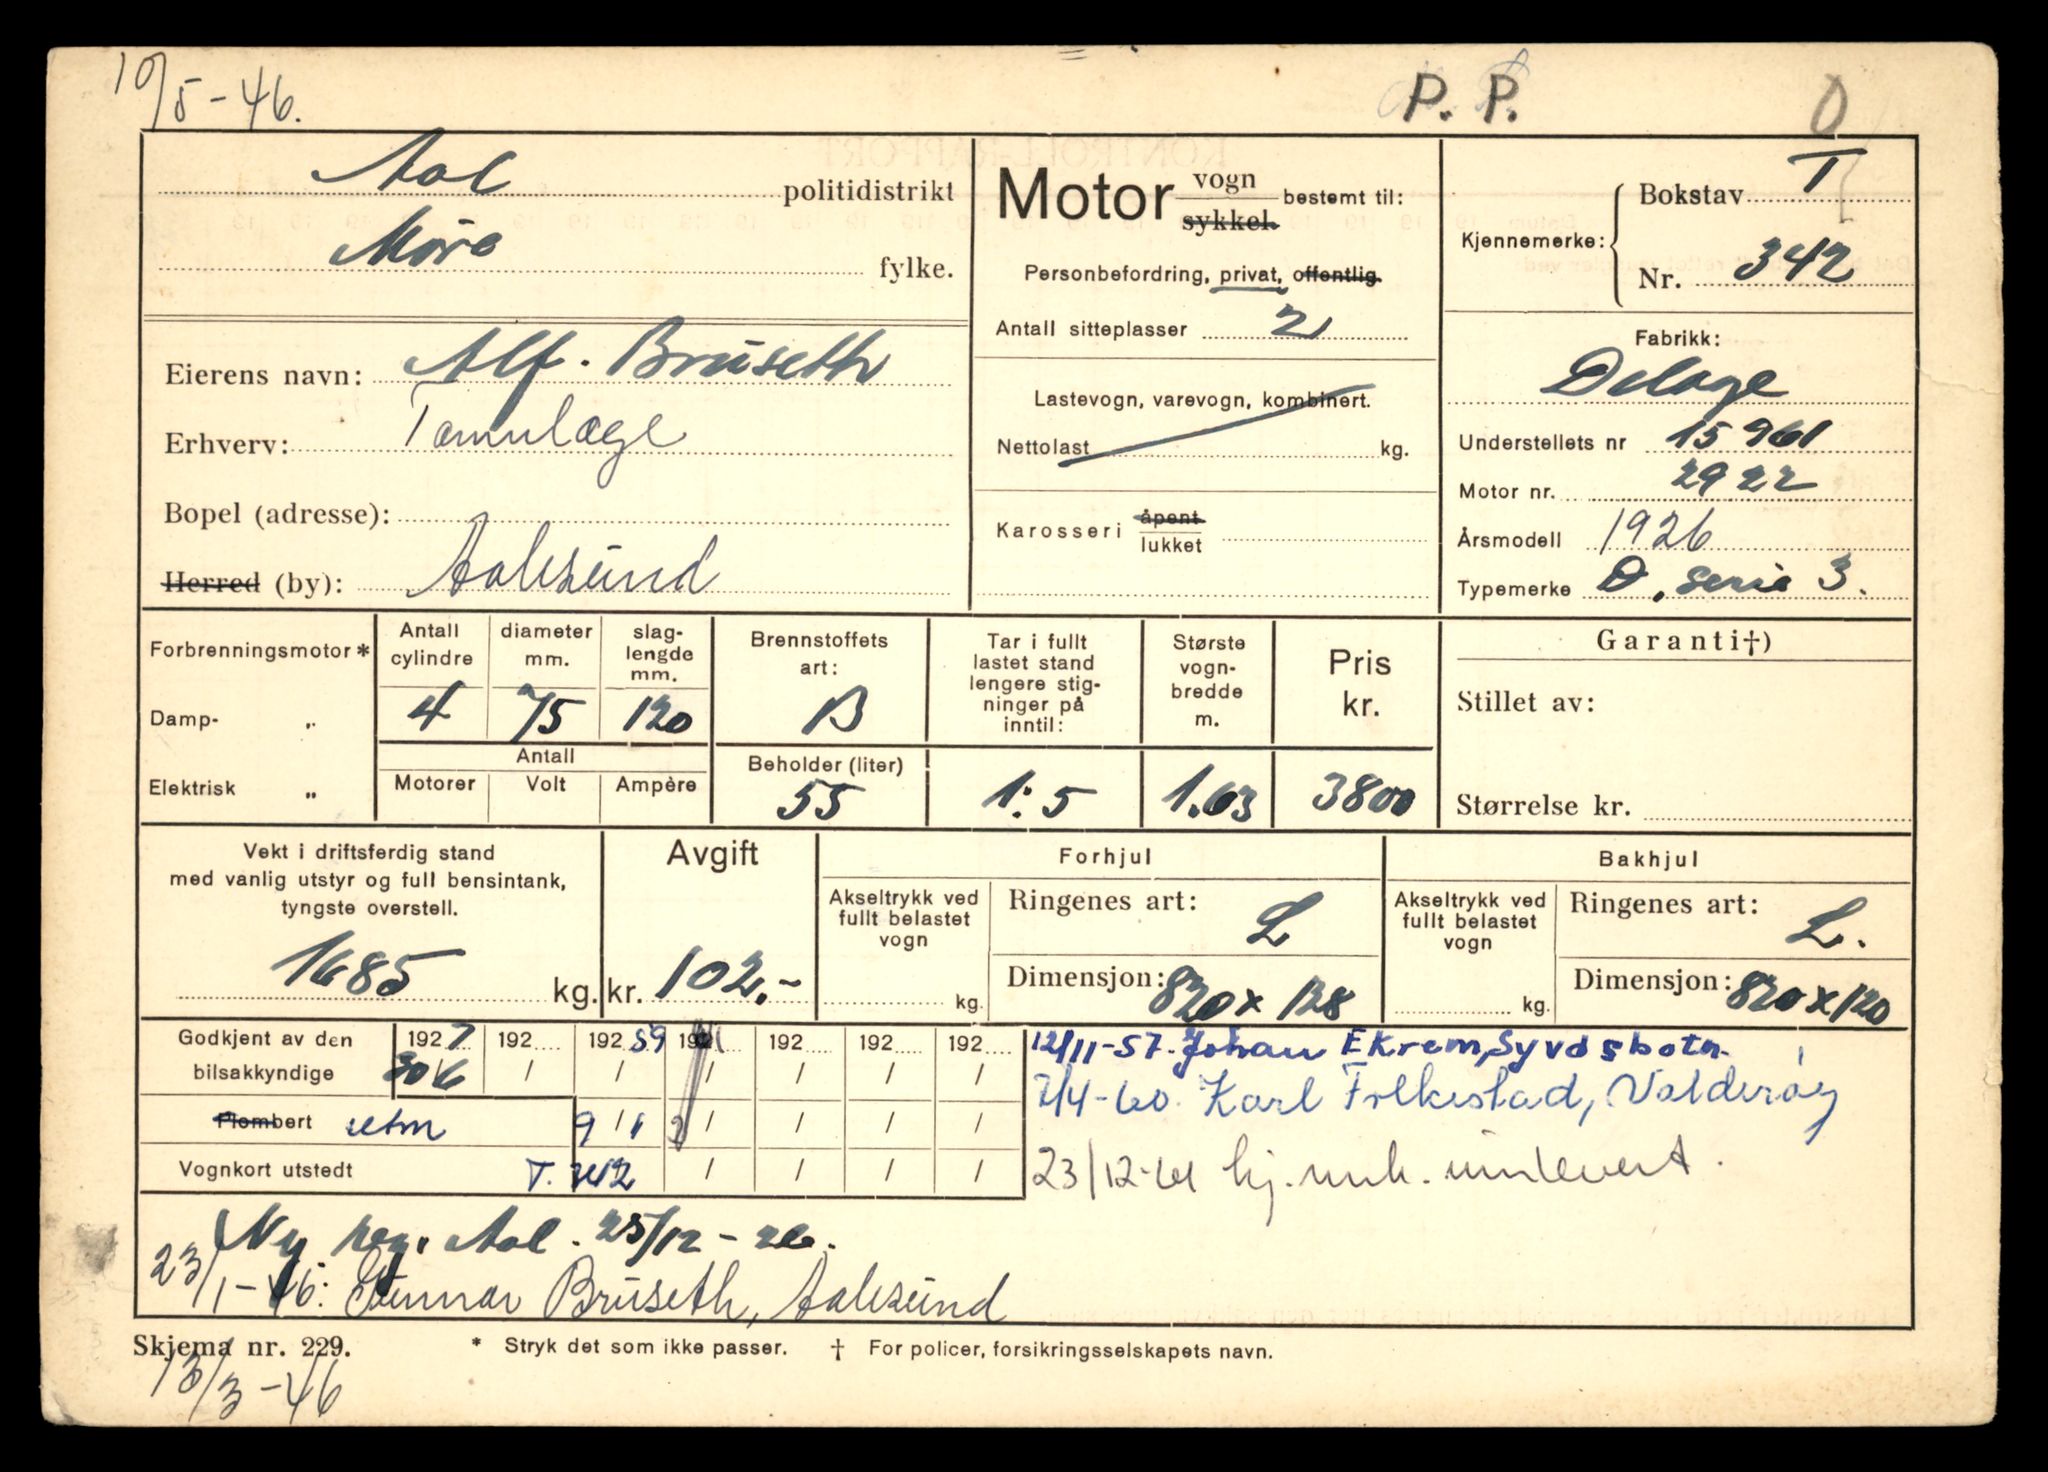 10/5-46.
P. P.
O
Aal politidistrikt
Møre fylke.
Motor vogn sykkel. bestemt til:
Personbefordring, privat, offentlig.
Antall sitteplasser 2
Lastevogn, varevogn, kombinert.
Nettolast kg.
Karosseri åpent lukket
Kjennemerke: Bokstav T
Nr. 342
Fabrikk:
Delage
Understellets nr 15961
Motor nr. 2922
Årsmodell 1926
Typemerke D. serie 3.
Eierens navn: Alf. Bruseth
Erhverv: Tannlæge
Bopel (adresse):
Herred (by): Aalesund
Forbrenningsmotor *
Damp- „
Elektrisk „
Antall cylindre 4
diameter mm. 75
slag-lengde mm. 120
Antall
Motorer Volt Ampère
Brennstoffets art: B
Beholder (liter) 55
Tar i fullt lastet stand lengere stig-ninger på inntil: 1:5
Største vogn-bredde m. 1.63
Pris kr. 3800
Garanti†)
Stillet av:
Størrelse kr.
Vekt i driftsferdig stand
med vanlig utstyr og full bensintank,
tyngste overstell.
1685 kg.
Avgift
kr. 102.-
Forhjul
Akseltrykk ved fullt belastet vogn kg.
Ringenes art: L
Dimensjon: 820x120
Bakhjul
Akseltrykk ved fullt belastet vogn kg.
Ringenes art: L.
Dimensjon: 820x120
Godkjent av den bilsakkyndige 1927 192 192 59 192 192 192
30/6 / / / / / /
Plombert 9/1 / / / /
Vognkort utstedt T. / / / /
12/11-57. Johan Ekrem, Syvdsbotn.
7/4-60. Karl Folkestad, Valderøy
23/12-61 kj.mrk. innlevert.
Ny reg. Aal. 23/12-26.
23/1-46: Gunnar Bruseth, Aalesund
Skjema nr. 229. * Stryk det som ikke passer. † For policer, forsikringsselskapets navn.
13/3-46